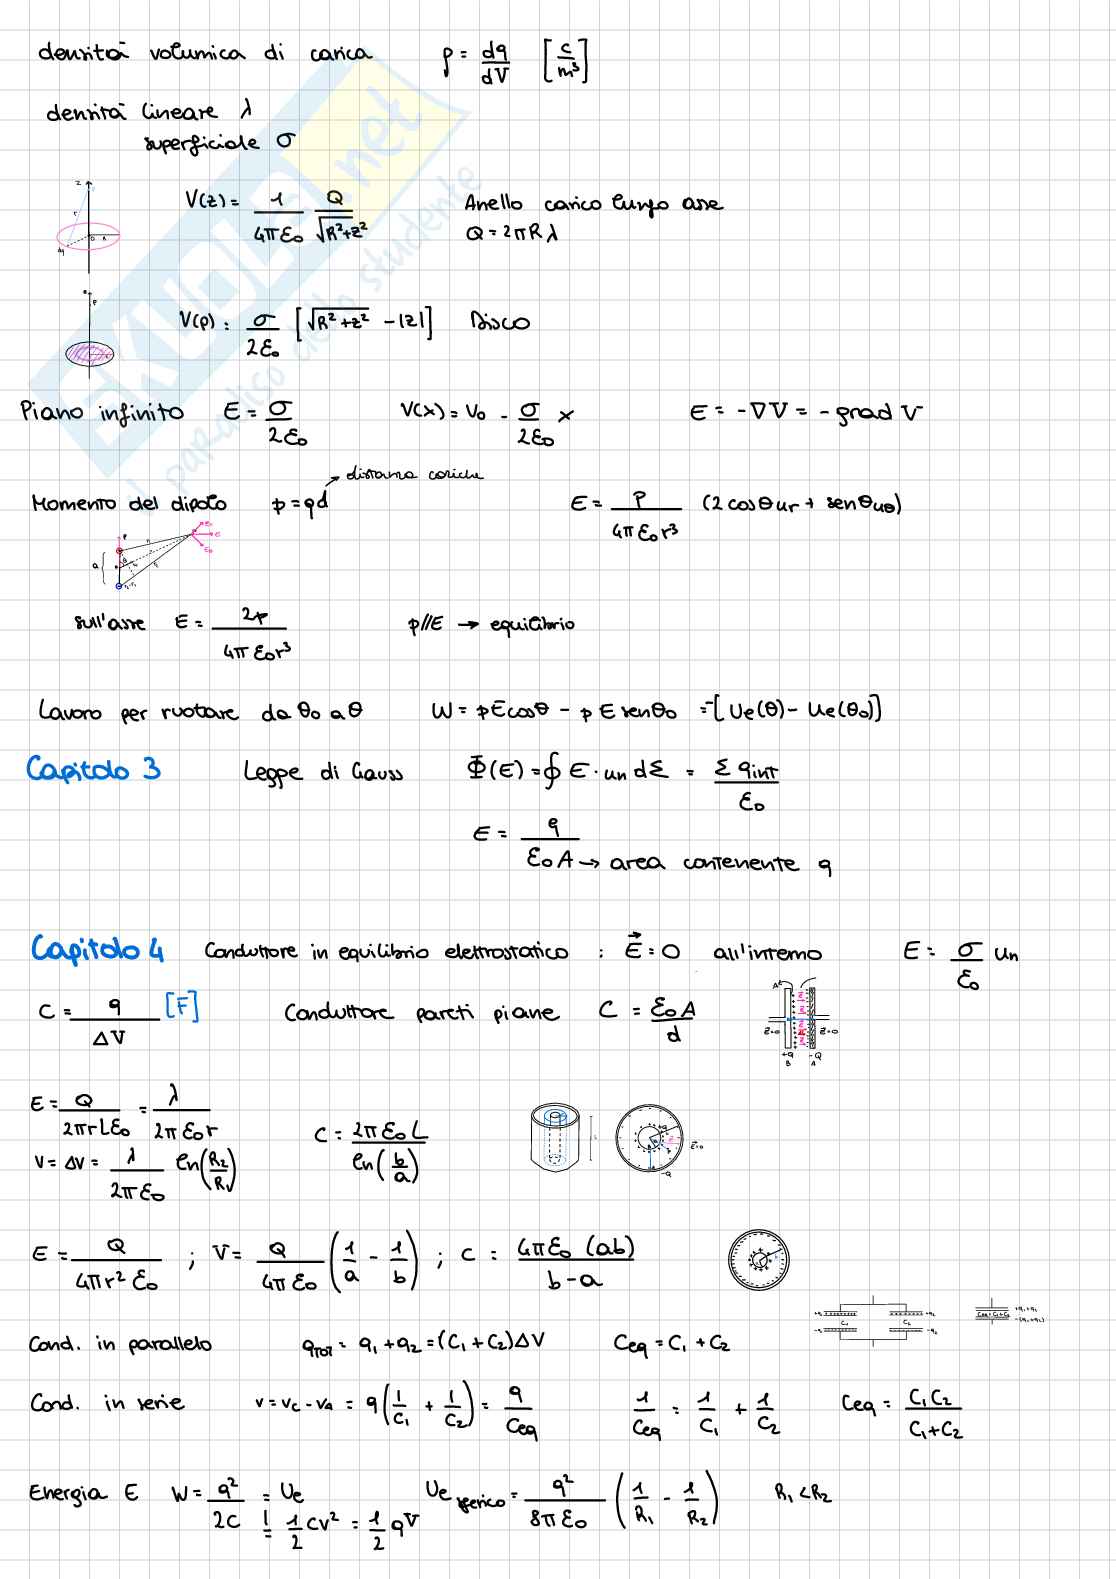 densità volumica di carica ρ = dq/dV [C/m³]
densità lineare λ
superficiale σ
V(z) = 1/4πε₀ Q/√R²+z² Anello carico lungo asse
Q = 2πRλ
V(p) = σ/2ε₀ [√R²+z² - |z|] Disco
Piano infinito E = σ/2ε₀ V(x) = V₀ - σ/2ε₀ x E = -∇V = -grad V
→ distanza cariche
Momento del dipolo p = qd E = P/4πε₀r³ (2cosθ ur + senθ uθ)
sull'asse E = 2p/4πε₀r³ p//E → equilibrio
Lavoro per ruotare da θ₀ a θ W = pEcosθ - pE senθ₀ = -[Ue(θ) - Ue(θ₀)]
Capitolo 3 Legge di Gauss Φ(E) = ∮ E · un dΣ = Σ qint/ε₀
E = q/ε₀A → area contenente q
Capitolo 4 Conduttore in equilibrio elettrostatico : E⃗ = 0 all'interno E = σ/ε₀ un
C = q/ΔV [F] Conduttore pareti piane C = ε₀A/d
E⃗=0 E⃗=0
+Q -Q
B A
E = Q/2πrLε₀ = λ/2πε₀r C = 2πε₀L/ln(b/a)
V = ΔV = λ/2πε₀ ln(R₂/R₁)
E⃗=0
-Q
E = Q/4πr²ε₀ ; V = Q/4πε₀ (1/a - 1/b) ; C = 4πε₀(ab)/b-a
+q₁ C₁ -q₁ +q₂ C₂ -q₂ Ceq = C₁+C₂ +q₁+q₂ -(q₁+q₂)
Cond. in parallelo qTOT = q₁+q₂ = (C₁+C₂)ΔV Ceq = C₁+C₂
Cond. in serie V = Vc - VA = q(1/C₁ + 1/C₂) = q/Ceq 1/Ceq = 1/C₁ + 1/C₂ Ceq = C₁C₂/C₁+C₂
Energia E W = q²/2C = Ue Ue sferico = q²/8πε₀ (1/R₁ - 1/R₂) R₁<R₂
= 1/2 CV² = 1/2 qV
SKUOLA.net
il paradiso dello studente